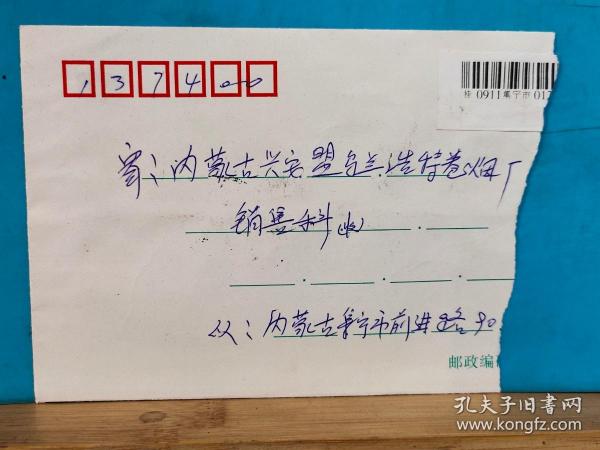 137400
挂 0911 集宁市 012
寄:内蒙古兴安盟乌兰浩特卷烟厂
销售科(收)
从:内蒙古集宁市前进路90
邮政编
孔夫子旧书网
www.kongfz.com